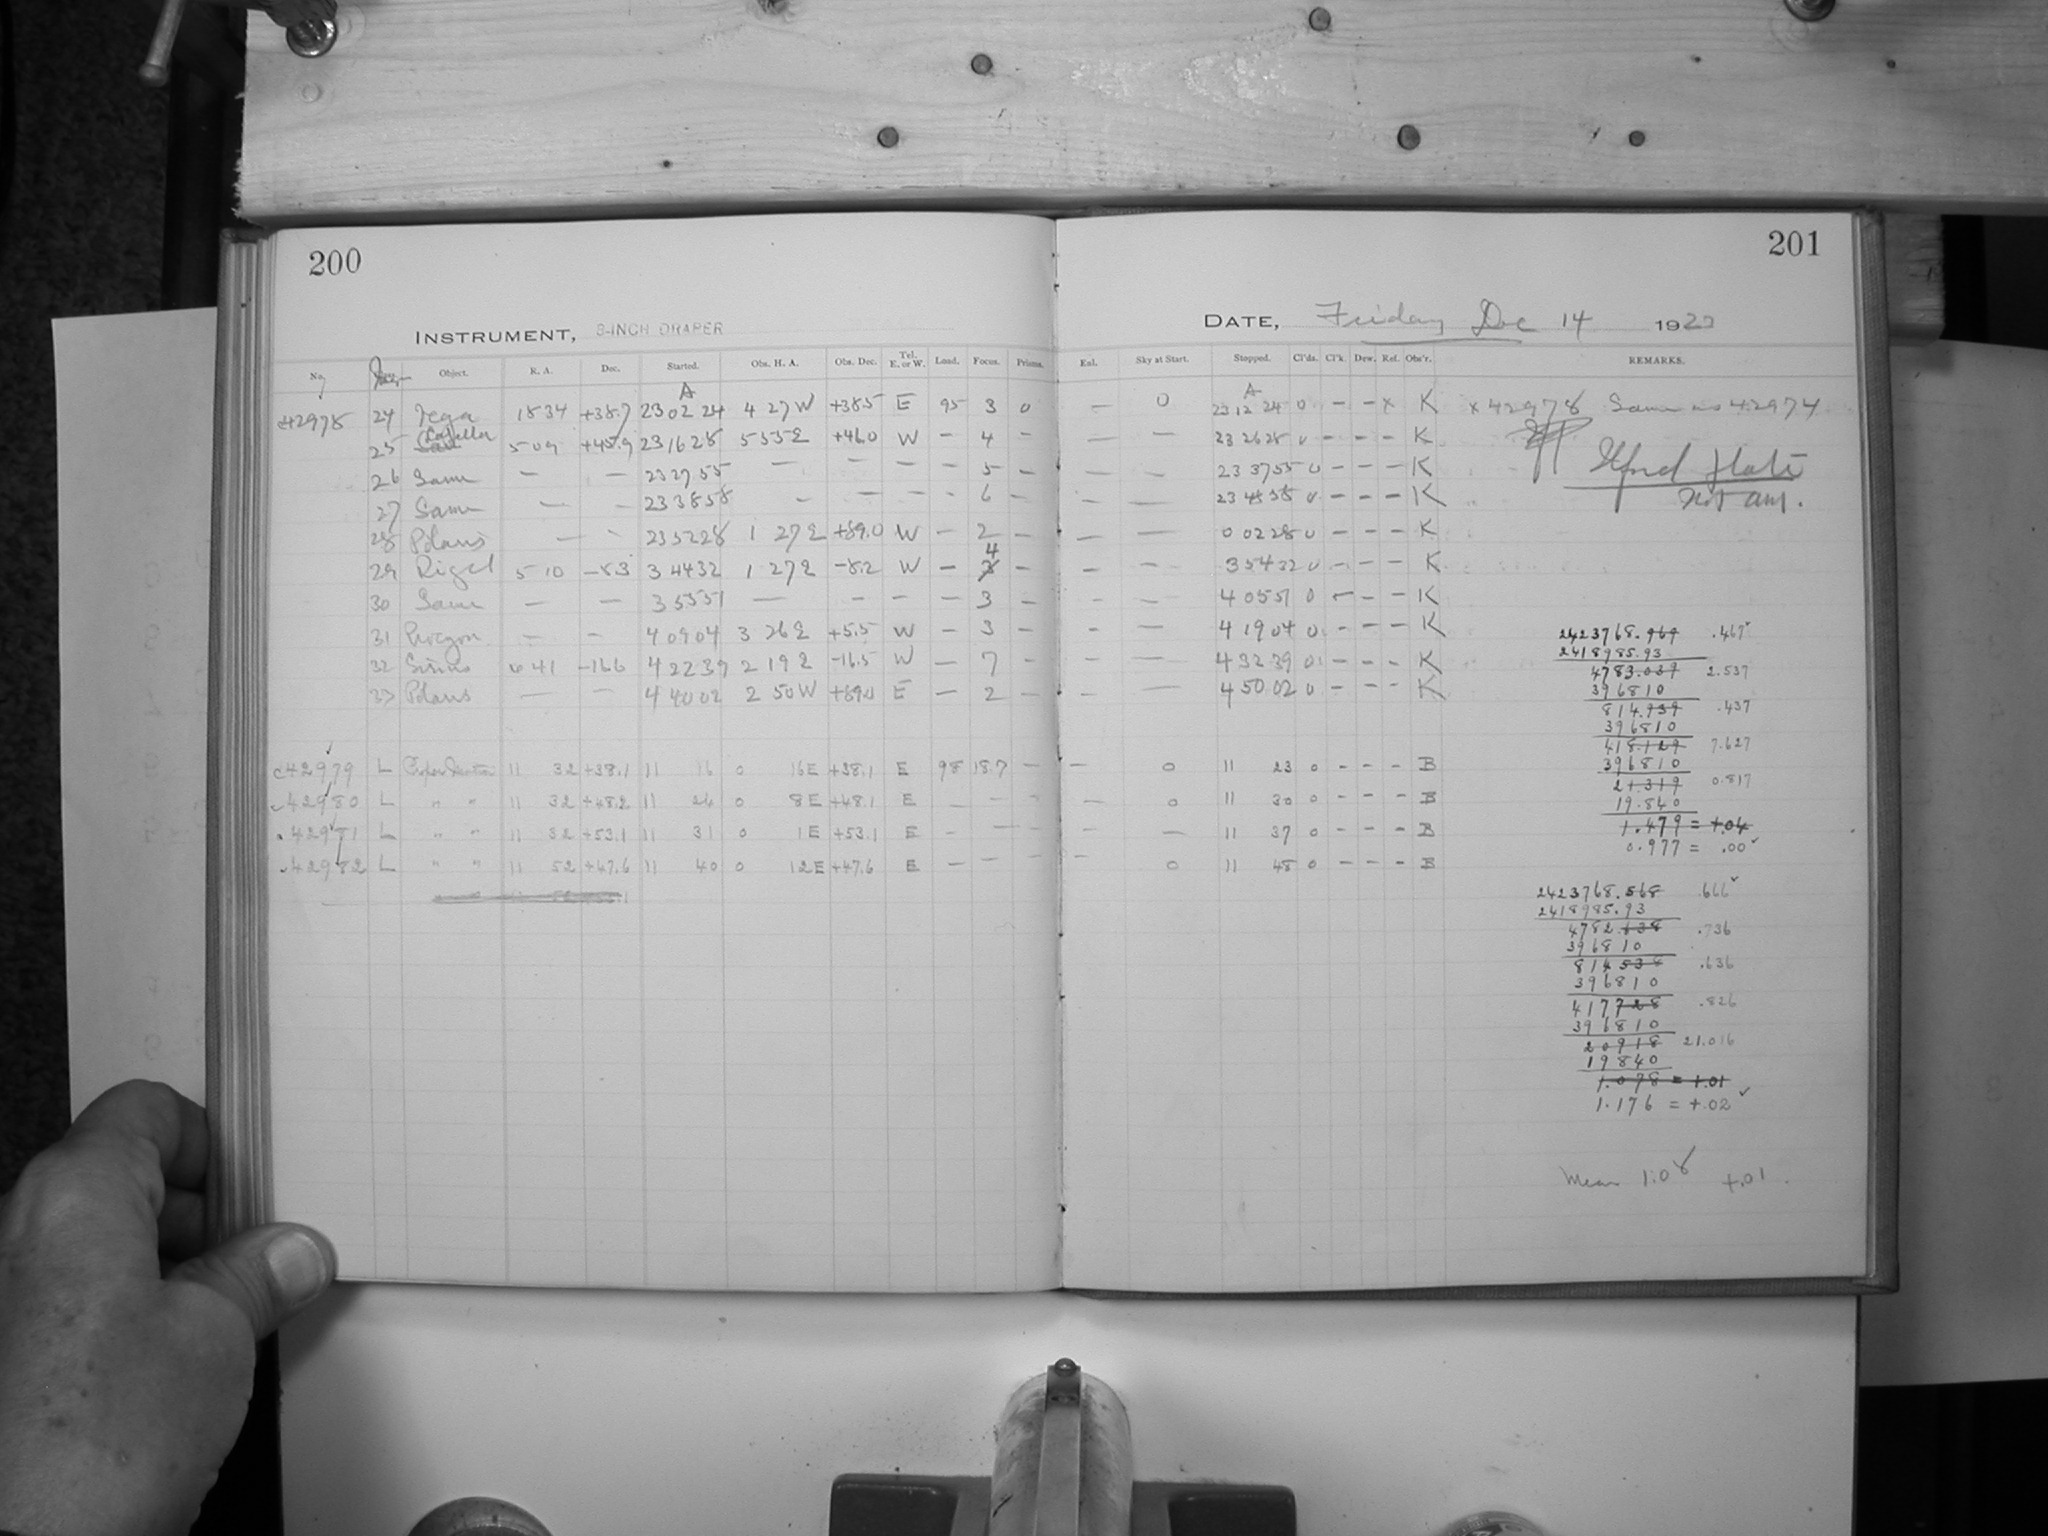 200
INSTRUMENT, 8-INCH DRAPER
No. Object. R. A. Dec. Started. Obs. H. A. Obs. Dec. Tel. E. or W. Load. Focus. Prisms.
A
C42978 24 Vega 18 34 +38.7 23 02 24 4 27 W +38.5 E 95 3 0
25 Capella 5 09 +45.9 23 16 28 5 55 E +46.0 W – 4 –
26 Same – – 23 27 55 – – – – 5 –
27 Same – – 23 38 58 – – – – 6 –
28 Polaris – – 23 52 28 1 27 E +89.0 W – 2 –
29 Rigel 5 10 –8.3 3 44 32 1 27 E –8.2 W – 4 –
30 Same – – 3 55 51 – – – – 3 –
31 Procyon – – 4 09 04 3 26 E +5.5 W – 3 –
32 Sirius 6 41 –16.6 4 22 39 2 19 E –16.5 W – 7 –
33 Polaris – – 4 40 02 2 50 W +89.0 E – 2 –
C42979 L Proper Motion 11 32 +38.1 11 16 0 16 E +38.1 E 98 18.7 –
42980 L " " 11 32 +48.2 11 24 0 8 E +48.1 E – – –
42981 L " " 11 32 +53.1 11 31 0 1 E +53.1 E – – –
42982 L " " 11 52 +47.6 11 40 0 12 E +47.6 E – – –
201
DATE, Friday Dec 14 1923
Enl. Sky at Start. Stopped. Cl'ds. Cl'k. Dew. Ref. Obs'r. REMARKS.
A
– 0 23 12 24 0 – – x K x 42978 Same as 42974
– – 23 26 28 0 – – – K
– – 23 37 55 0 – – – K Ilford Plate
23 48 58 0 – – – K not am.
– – 0 02 28 0 – – – K
– – 3 54 32 0 – – – K
– – 4 05 51 0 – – – K
– – 4 19 04 0 – – – K
– – 4 32 39 0 – – – K
– – 4 50 02 0 – – – K
– 0 11 23 0 – – – B
– 0 11 30 0 – – – B
– – 11 37 0 – – – B
– 0 11 48 0 – – – B
2423768.969 .467
2418985.93
4783.039 2.537
396810
814.939 .437
396810
418.129 7.627
396810
21.319 0.817
19.840
1.479 = +.04
0.977 = .00
2423768.568 .666
2418985.93
4782.638 .736
396810
814538 .636
396810
417728 .826
396810
20918 21.016
19840
1.078 = +.01
1.176 = +.02
Mean 1.08 +.01